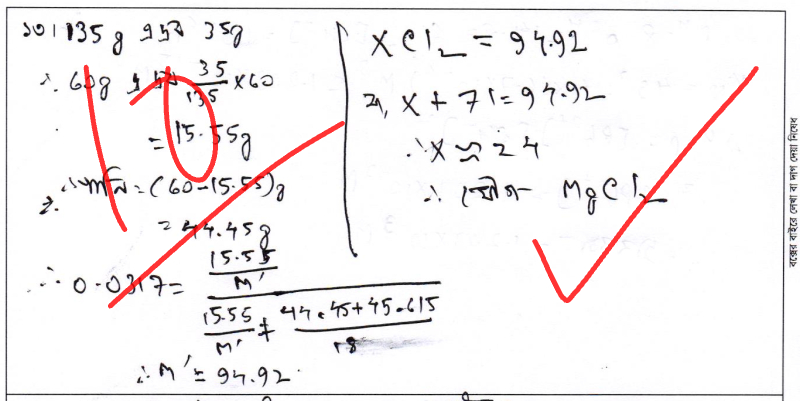 ১০। 135g এ দ্রব 35g
∴ 60g এ দ্রব 35/135 ×60
= 15.55g
∴ পানি = (60-15.55)g
= 44.45g
∴ 0.0317 = (15.55/M′) / (15.55/M′ + (44.45+45.615)/18)
∴ M′ = 94.92
XCl₂ = 94.92
বা, X + 71 = 94.92
∴ X ≈ 24
∴ যৌগ MgCl₂
বক্সের বাইরে লেখা বা দাগ দেয়া নিষেধ